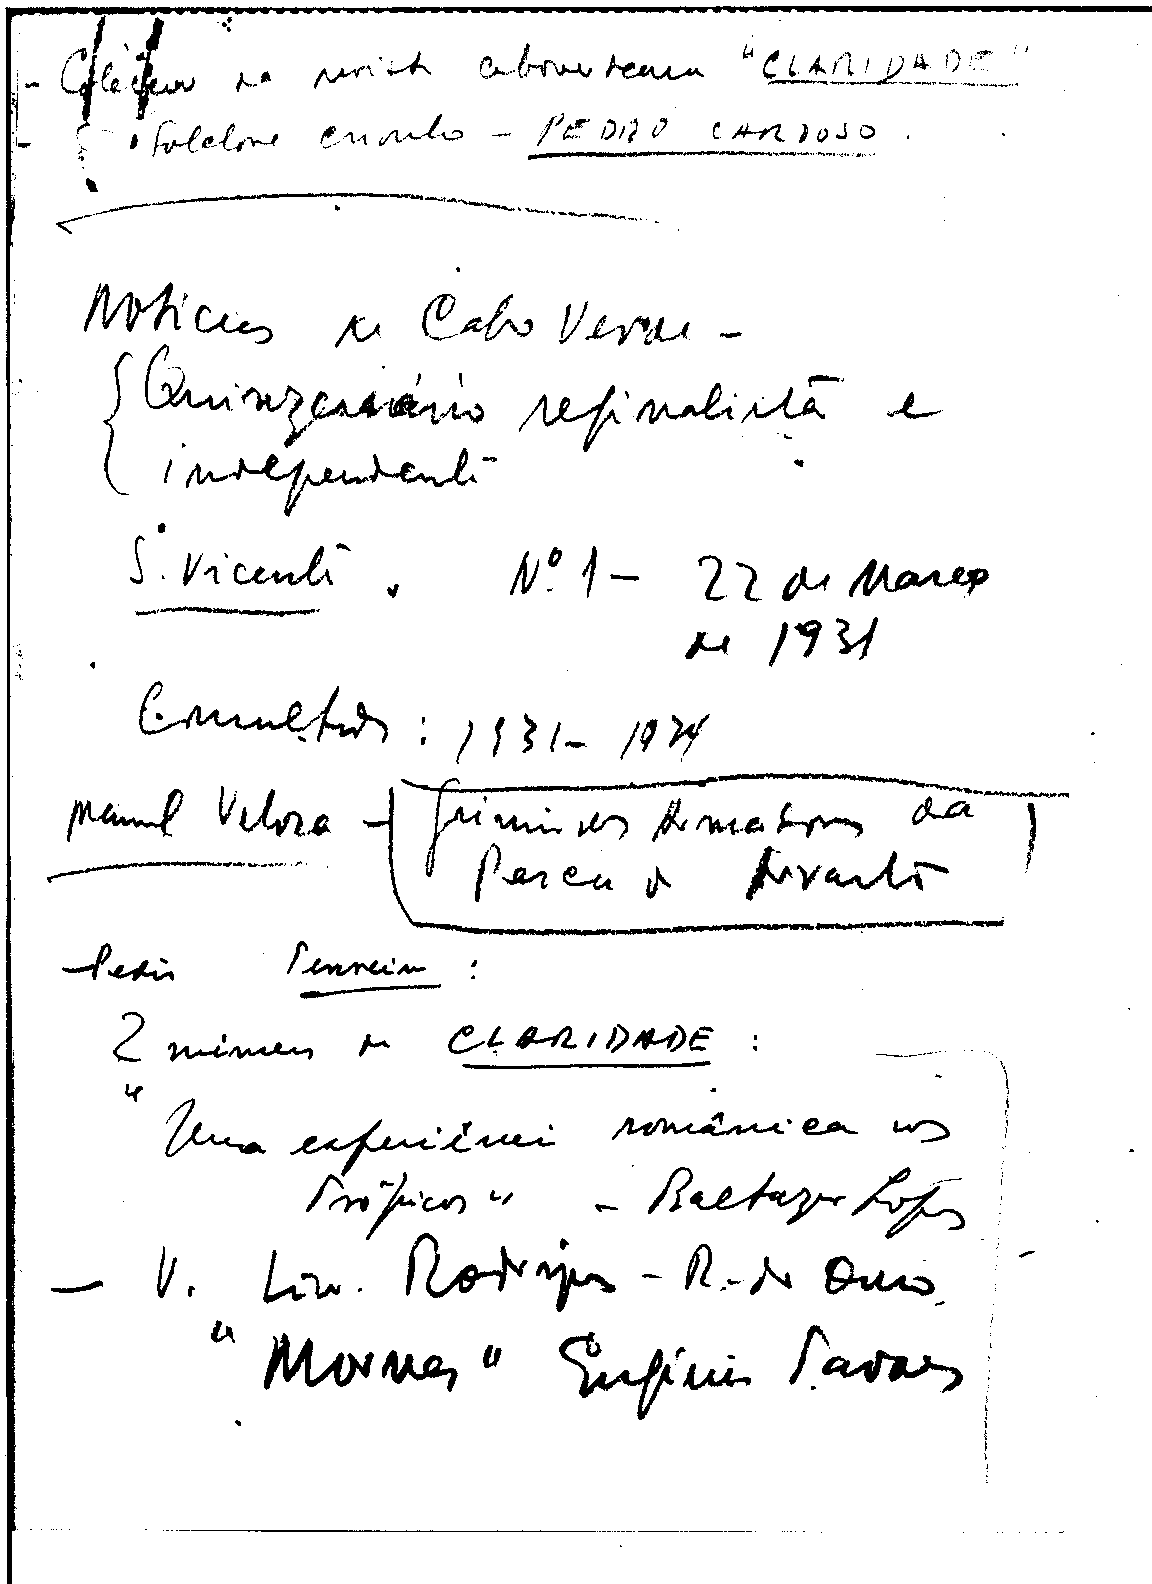 - Colecção da revista caboverdeana "CLARIDADE"
- Folclore crioulo - PEDRO CARDOSO.
Notícias de Cabo Verde -
Quinzenário regionalista e
independente
S. Vicente. Nº. 1 - 22 de Março
de 1931
Consultados: 1931 - 1974
Manuel Veloza - da
Pesca do
- Pedir Tenreiro:
2 números da CLARIDADE:
"Uma experiência românica nos
Trópicos" - Baltazar Lopes
- V. Liv. Rodrigues - R. do Ouro.
"Mornas" Eugénio Tavares